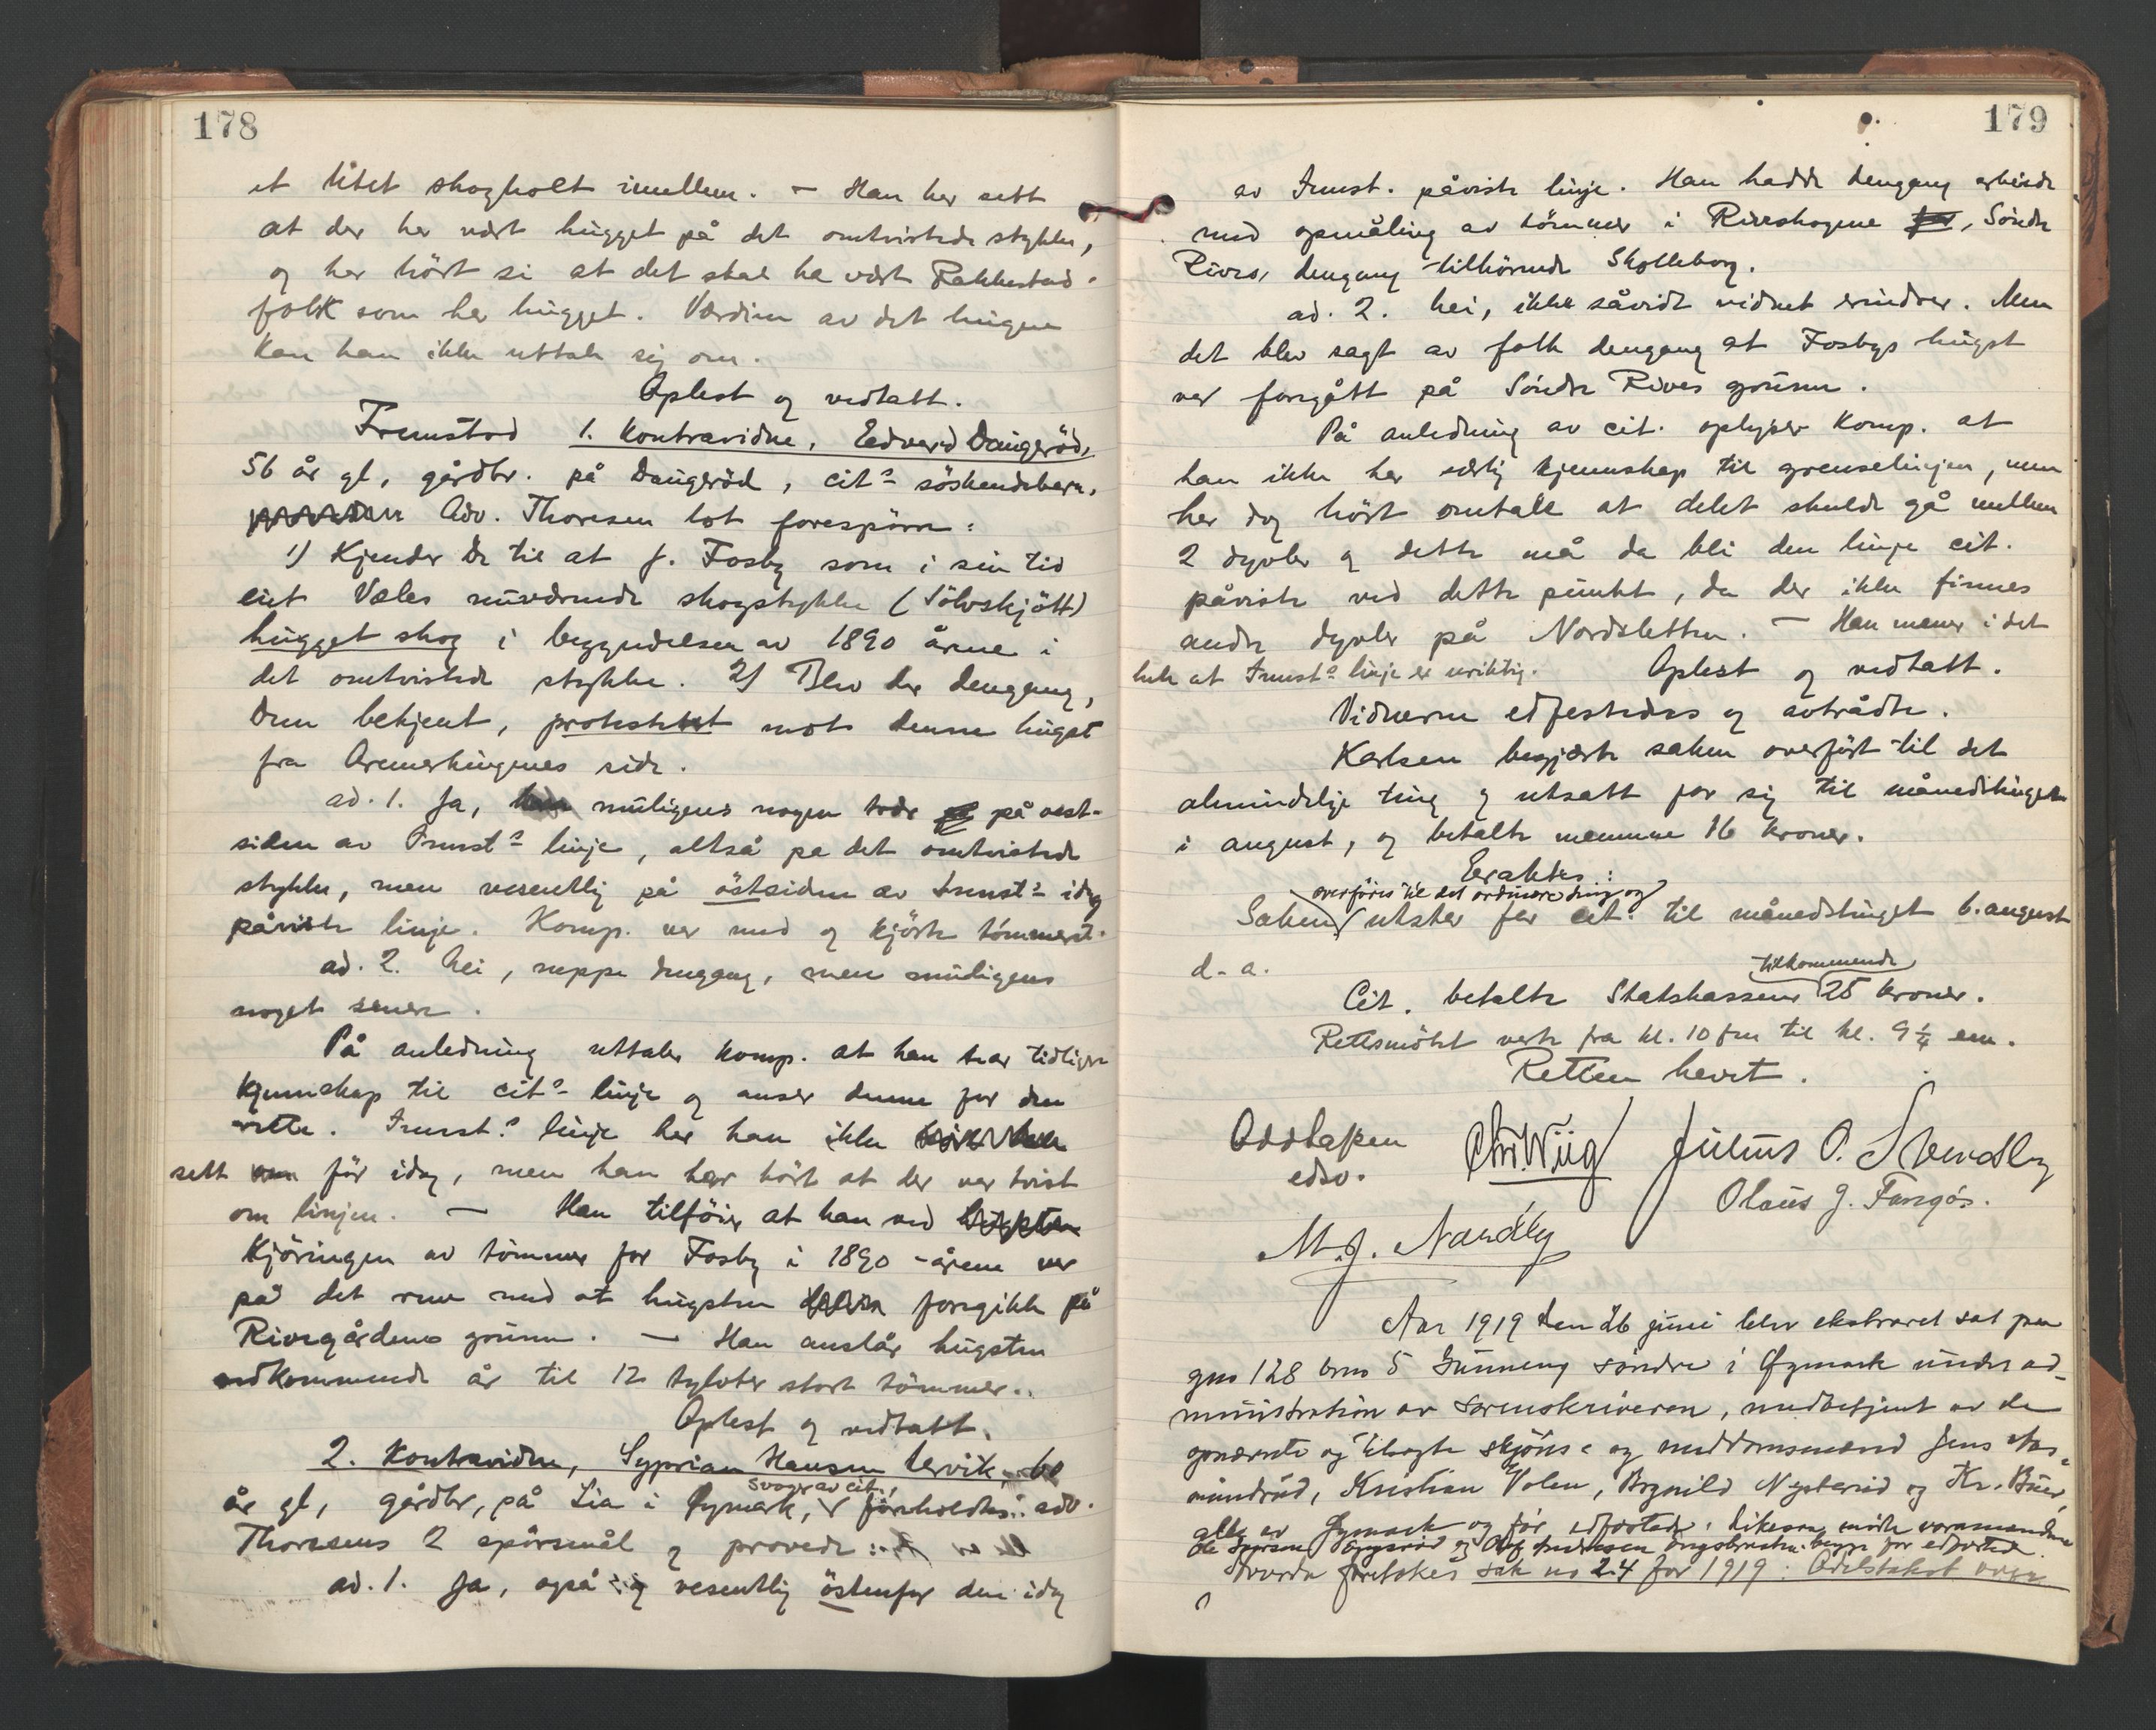 178
et litet skogholt imellem. – Han har sett
at der har vært hugget på det omtvistede stykke,
og har hört si at det skal ha vært Rakkestad-
folk som har hugget. Værdien av det hugne
kan han ikke uttale sig om.
Oplest og vedtatt.
Fremstod 1. kontravidne, Edvard Daugeröd,
56 år gl, gårdbr. på Daugeröd, cits söskendebarn,
Adv. Thoresen lot forespörre:
1) Kjender De til at J. Fosby som i sin tid
eiet Vales nuværende skogstykke (Sölvskjött)
hugget skog i begyndelsen av 1890 årene i
det omtvistede stykke. 2) Blev der dengang,
Dem bekjent, protestert mot denne hugst
fra Aremerkingenes side.
ad. 1. Ja, muligens nogen trær på vest-
siden av Innsts linje, altså på det omtvistede
stykke, men vesentlig på östsiden av Innsts idag
påviste linje. Komp. var med og kjörte tömmeret.
ad. 2. Nei, neppe dengang, men muligens
noget senere.
På anledning uttaler komp. at han har tidligere
kjennskap til cits linje og anser denne for den
rette. Innst.s linje har han ikke
sett för idag, men han har hört at der var tvist
om linjen. – Han tilföier at han ved
kjöringen av tömmer for Fosby i 1890-årene var
på det rene med at hugsten foregikk på
Rivegårdens grunn. – Han anslår hugsten
vedkommende år til 12 tylvter stort tömmer.
Oplest og vedtatt.
2. Kontravidne, Syprian Hansen Lervik, 60
svoger av cit.,
år gl, gårdbr, på Lia i Öymark, foreholdtes adv.
Thoresens 2 spörsmål og provede:
ad. 1. Ja, også vesentlig östenfor den idag
179
av Innst. påviste linje. Han hadde dengang arbeide
med opmåling av tömmer i Riveskogene, Söndre
Rives, dengang tilhörende Skolleborg.
ad. 2. Nei, ikke såvidt vidnet erindrer. Men
det blev sagt av folk dengang at Fosbys hugst
var foregått på Söndre Rives grunn.
På anledning av cit. oplyser komp. at
han ikke har særlig kjennskap til grenselinjen, men
har dog hört omtale at delet skulde gå mellem
2 dypler og dette må da bli den linje cit.
påviste ved dette punkt, da der ikke finnes
andre dypler på Nordsletten. – Han mener i det
hele at Innsts linje er uriktig. Oplest og vedtatt.
Vidnerne edfestedes og avtrådte.
Karlsen begjærte saken overfört til det
almindelige ting og utsatt for sig til månedstinget
i august, og betalte mennene 16 kroner.
Eraktes:
overföres til det ordinære ting og
Saken utstær for cit. til månedstinget 6. august
d. a.
tilkommende
Cit. betalte Statskassens 25 kroner.
Rettsmötet varte fra kl. 10 fm til kl. 9 1/4 em.
Retten hevet.
Odd Lassen
edsv.
Chr. Wiig
Julius O. Strendsby
Olaus J. Fangås.
M. J. Nordby
Aar 1919 den 26 juni blev ekstraret sat paa
gno 128 bno 5 Gunneng söndre i Öymark under ad-
ministration av sorenskriveren, medbetjent av de
opnævnte og tilsagte skjöns- og meddomsmænd Jens As-
mundrud, Kristian Volen, Brynild Nysterud og Kr. Buer,
alle av Öymark og för edfæstede. Likesaa mötte varamændene
begge för edfæstede.
Hvorda foretokes sak no 24 for 1919: Odelstakst over